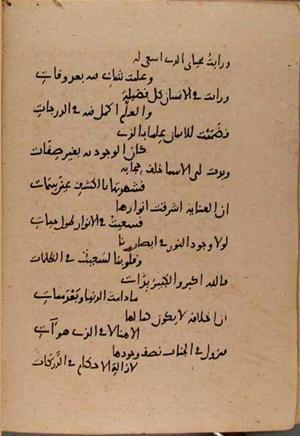 ورايت محياى الذى اسعى له
وعلمت شانى فيه بعد وفات
ورايت فى الانسان كل فضيلة
والعلم اكمل فيه فى الدرجات
فضممت للايمان علما بالذى
كان الوجود به بغير صفات
وبدت لى الاسما خلف حجابه
فشهرتها بالكشف عين سمات
ان العناية اشرقت انوارها
فسعيت فى الانوار لهوا حيات
لولا وجود النور فى ابصارنا
وقلوبنا لسعيت فى الظلمات
فالله اكبر والكبير
مادامت الدنيا وبعد مماتى
ان الخلافة لا يكون مثالها
الا هنا لا فى الذى هو آت
فنزول فى الجنات نصف وجودها
لازالة الاحكام فى الدركات